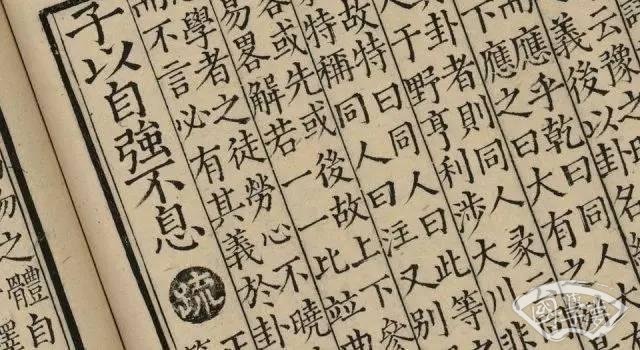 云豫
義後以卦名
而應乎乾曰同人
下應之曰大有之
卦者則同人彖云
人于野亨利涉大川非
故特曰同人曰此等之
特稱同人曰注又別
容或先或後故上下參
易畧解若一一比並曲
學者之徒勞心不曉
而不言必有其義於卦
子以自強不息
疏
之體自